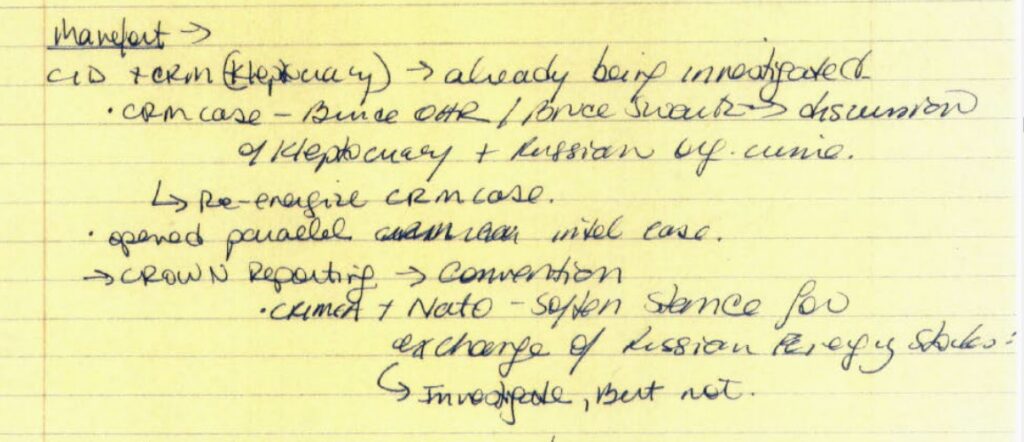 Manafort →
CID + CRM (Kleptocracy) → already being investigated
· CRM case – Bruce OHR / Bruce Swartz → discussion
of Kleptocracy + Russian org. crime.
↳ Re-energize CRM case.
· opened parallel intel case.
→ CROWN Reporting → Convention
· CRIMEA + Nato – Soften stance for
exchange of Russian Energy Stakes
↳ Investigate, But not.